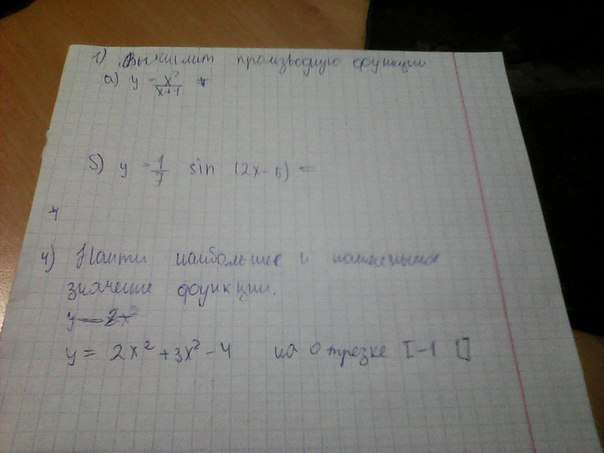 1) Вычислит производную функции
а) y = x²/x+1
б) y = 1/7 sin (2x-5) =
4) Найти наибольшее и наименьшее
значение функции.
y = 2x²
y = 2x² + 3x² - 4 на отрезке [-1 1]